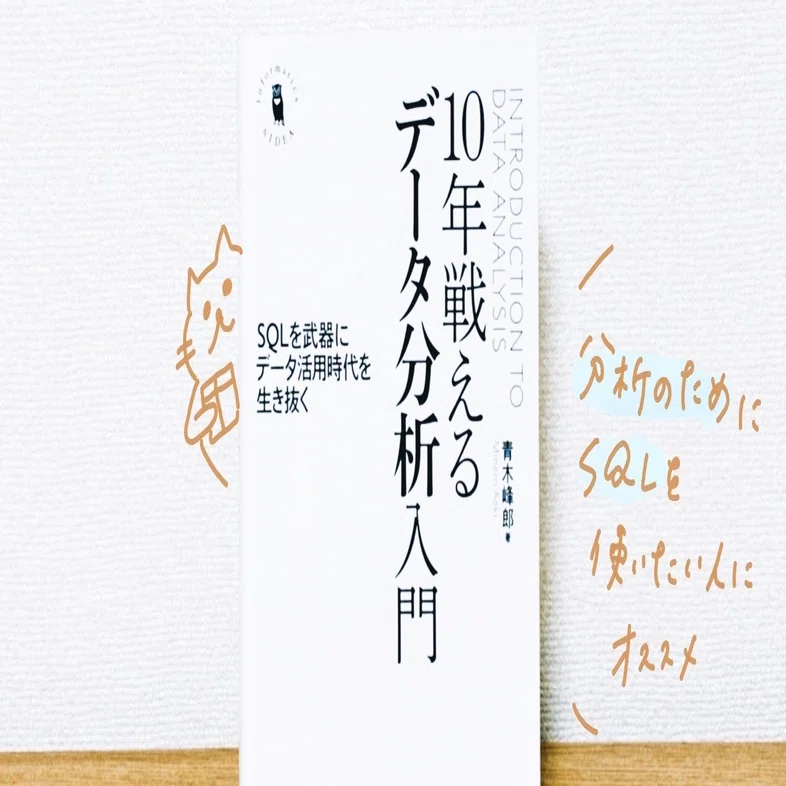 Informatics
&IDEA
INTRODUCTION TO
DATA ANALYSIS
10年戦える
データ分析入門
SQLを武器に
データ活用時代を
生き抜く
青木峰郎 著
Minero Aoki
分析のために
SQLを
使いたい人に
オススメ